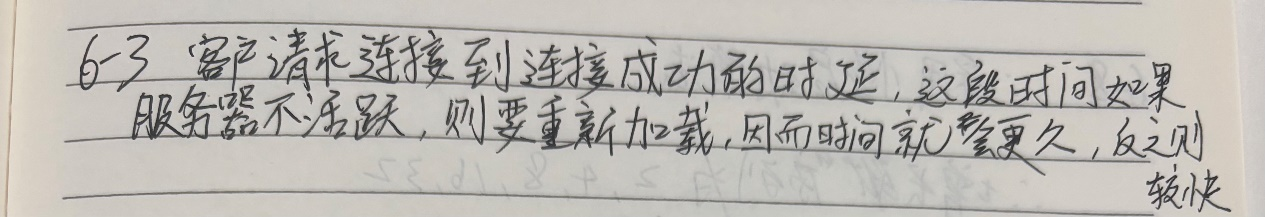 6-3 客户请求连接到连接成功的时延,这段时间如果
服务器不活跃,则要重新加载,因而时间就会更久,反之则
较快